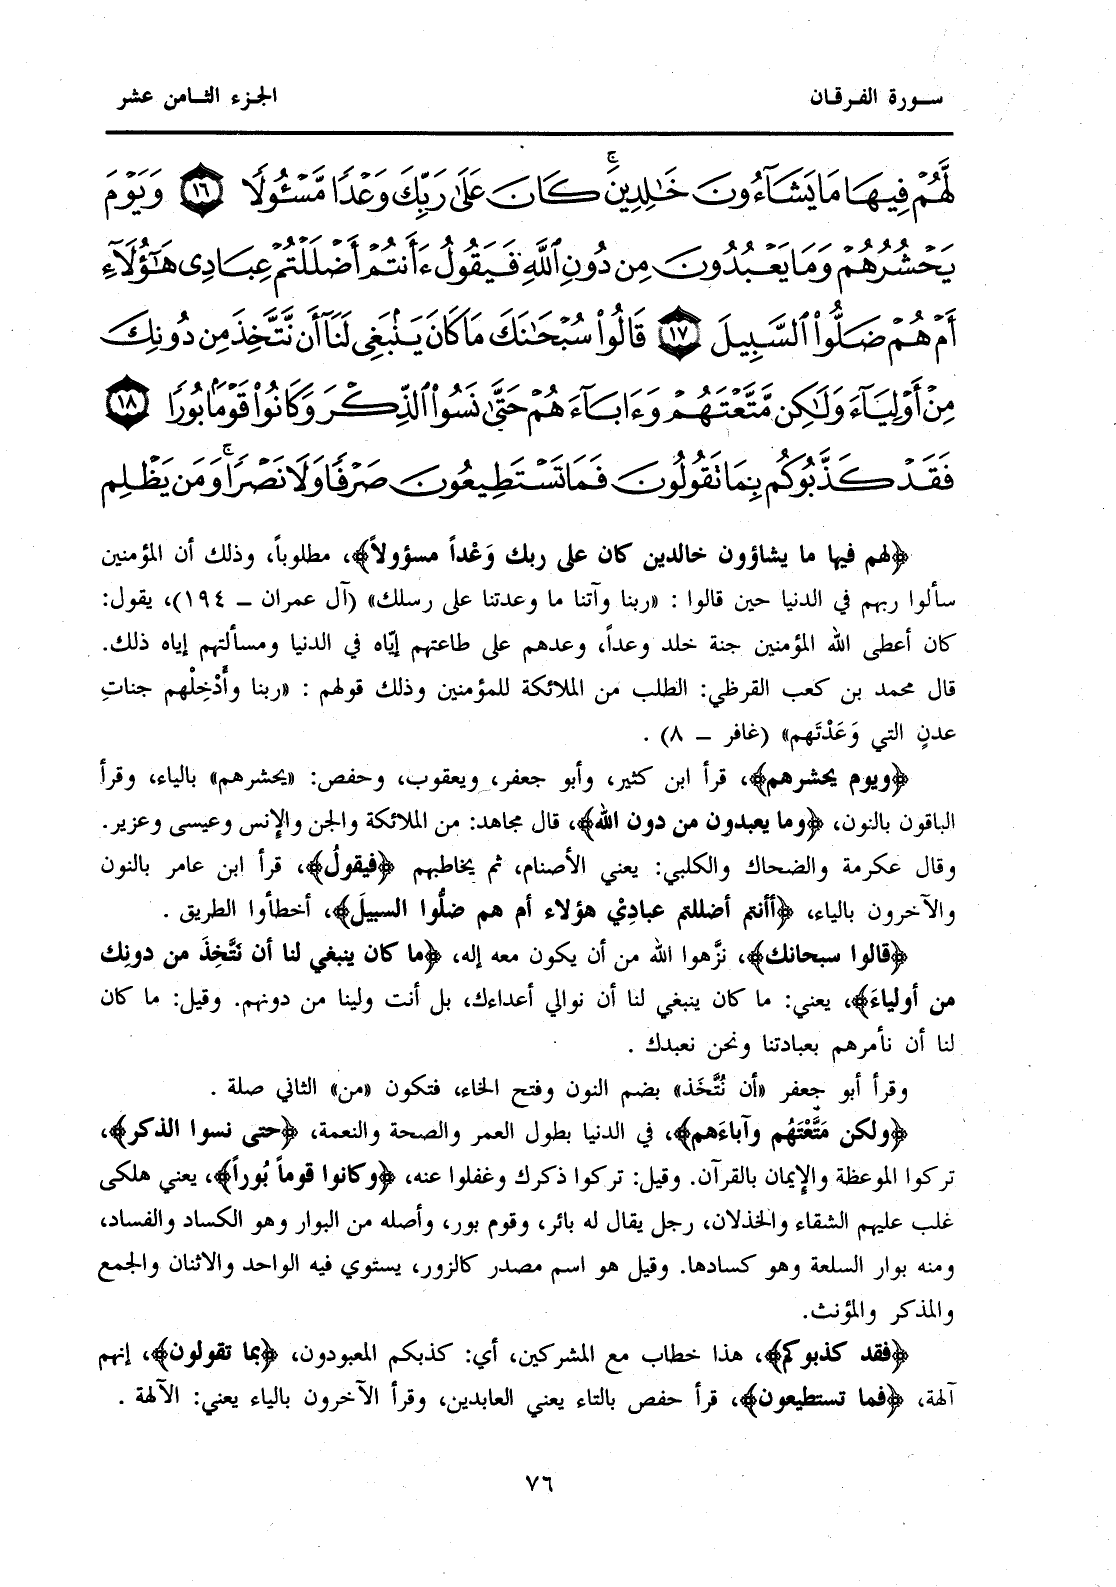 سورة الفرقان
الجزء الثامن عشر
لَّهُمْ فِيهَا مَا يَشَآءُونَ خَٰلِدِينَ ۚ كَانَ عَلَىٰ رَبِّكَ وَعْدًا مَّسْـُٔولًا ١٦ وَيَوْمَ
يَحْشُرُهُمْ وَمَا يَعْبُدُونَ مِن دُونِ ٱللَّهِ فَيَقُولُ ءَأَنتُمْ أَضْلَلْتُمْ عِبَادِى هَٰٓؤُلَآءِ
أَمْ هُمْ ضَلُّوا۟ ٱلسَّبِيلَ ١٧ قَالُوا۟ سُبْحَٰنَكَ مَا كَانَ يَنۢبَغِى لَنَآ أَن نَّتَّخِذَ مِن دُونِكَ
مِنْ أَوْلِيَآءَ وَلَٰكِن مَّتَّعْتَهُمْ وَءَابَآءَهُمْ حَتَّىٰ نَسُوا۟ ٱلذِّكْرَ وَكَانُوا۟ قَوْمًۢا بُورًا ١٨
فَقَدْ كَذَّبُوكُم بِمَا تَقُولُونَ فَمَا تَسْتَطِيعُونَ صَرْفًا وَلَا نَصْرًا ۚ وَمَن يَظْلِم
﴿لهم فيها ما يشاؤون خالدين كان على ربك وَعْداً مسؤولاً﴾، مطلوباً، وذلك أن المؤمنين
سألوا ربهم في الدنيا حين قالوا : «ربنا وآتنا ما وعدتنا على رسلك» (آل عمران ــ ١٩٤)، يقول:
كان أعطى الله المؤمنين جنة خلد وعداً، وعدهم على طاعتهم إيّاه في الدنيا ومسألتهم إياه ذلك.
قال محمد بن كعب القرظي: الطلب من الملائكة للمؤمنين وذلك قولهم : «ربنا وأَدْخِلْهم جناتِ
عدنٍ التي وَعَدْتَهم» (غافر ــ ٨) .
﴿ويوم يحشرهم﴾، قرأ ابن كثير، وأبو جعفر، ويعقوب، وحفص: «يحشرهم» بالياء، وقرأ
الباقون بالنون، ﴿وما يعبدون من دون الله﴾، قال مجاهد: من الملائكة والجن والإنس وعيسى وعزير.
وقال عكرمة والضحاك والكلبي: يعني الأصنام، ثم يخاطبهم ﴿فيقولُ﴾، قرأ ابن عامر بالنون
والآخرون بالياء، ﴿أأنتم أضللتم عبادِيْ هؤلاء أم هم ضلُّوا السبيلَ﴾، أخطأوا الطريق .
﴿قالوا سبحانك﴾، نزَّهوا الله من أن يكون معه إله، ﴿ما كان ينبغي لنا أن نَتَّخِذَ من دونِك
من أولياءَ﴾، يعني: ما كان ينبغي لنا أن نوالي أعداءك، بل أنت ولينا من دونهم. وقيل: ما كان
لنا أن نأمرهم بعبادتنا ونحن نعبدك .
وقرأ أبو جعفر «أن نُتَّخَذ» بضم النون وفتح الخاء، فتكون «من» الثاني صلة .
﴿ولكن مَتَّعْتَهُم وآباءَهم﴾، في الدنيا بطول العمر والصحة والنعمة، ﴿حتى نسوا الذكر﴾،
تركوا الموعظة والإيمان بالقرآن. وقيل: تركوا ذكرك وغفلوا عنه، ﴿وكانوا قوماً بُوراً﴾، يعني هلكى
غلب عليهم الشقاء والخذلان، رجل يقال له بائر، وقوم بور، وأصله من البوار وهو الكساد والفساد،
ومنه بوار السلعة وهو كسادها. وقيل هو اسم مصدر كالزور، يستوي فيه الواحد والاثنان والجمع
والمذكر والمؤنث.
﴿فقد كذبوكم﴾، هذا خطاب مع المشركين، أي: كذبكم المعبودون، ﴿بما تقولون﴾، إنهم
آلهة، ﴿فما تستطيعون﴾، قرأ حفص بالتاء يعني العابدين، وقرأ الآخرون بالياء يعني: الآلهة .
٧٦